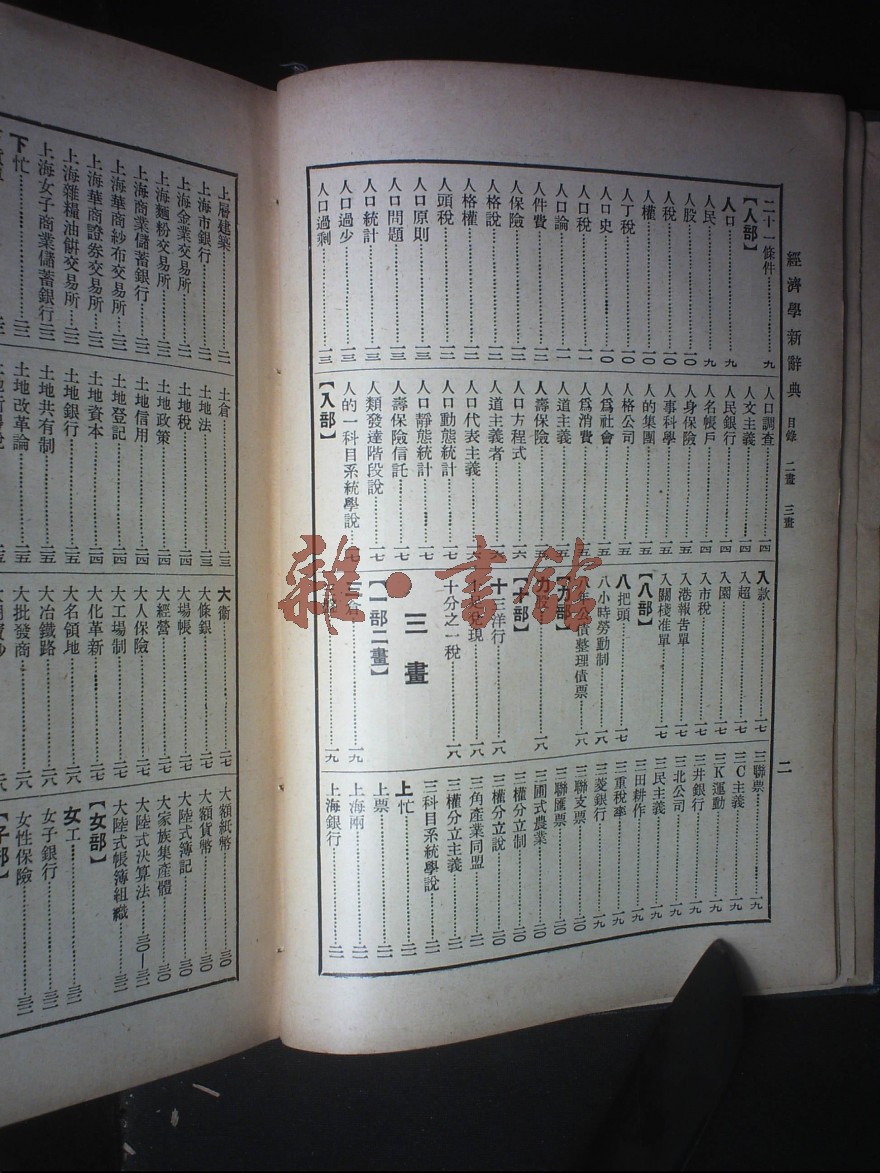 經濟學新辭典 目錄 二畫 三畫 二
二十一條件 九
【人部】
人口 九
人民 九
人股 一〇
人稅 一〇
人權 一〇
人丁稅 一〇
人口史 一〇
人口稅 一一
人口論 一一
人件費 一二
人保險 一二
人格說 一二
人格權 一二
人頭稅 一二
人口原則 一三
人口問題 一三
人口統計 一三
人口過少 一三
人口過剩 一三
人口調查 一四
人文主義 一四
人民銀行 一四
人名帳戶 一四
人身保險 一四
人事科學 一五
人的集團 一五
人格公司 一五
人爲社會 一五
人爲消費 一五
人道主義 一五
人壽保險 一五
人口方程式 一六
人口代表主義 一六
人道主義者 一六
人口動態統計 一七
人口靜態統計 一七
人壽保險信託 一七
人類發達階段說 一七
人的一科目系統學說 一七
【入部】
入款 一七
入超 一七
入園 一七
入市稅 一七
入港報告單 一七
入關棧准單 一七
【八部】
八把頭 一七
八小時勞動制 一八
八年公債整理債票 一八
【力部】
力 一八
【十部】
十三洋行 一八
兌現 一八
十分之一稅 一八
三畫
【一部二畫】
三倉 一九
一九
三聯票 一九
三C主義 一九
三K運動 一九
三井銀行 一九
三北公司 一九
三民主義 一九
三田耕作 一九
三重稅率 一九
三菱銀行 一九
三聯支票 二〇
三聯匯票 二〇
三圃式農業 二〇
三權分立制 二〇
三權分立說 二〇
三角產業同盟 二一
三權分立主義 二一
三科目系統學說 二一
上忙 二一
上票 二一
上海兩 二一
上海銀行 二一
上層建築 二一
上海市銀行 二一
上海金業交易所 二二
上海麵粉交易所 二二
上海商業儲蓄銀行 二二
上海華商紗布交易所 二二
上海華商證券交易所 二三
上海雜糧油餅交易所 二三
上海女子商業儲蓄銀行 二三
下忙 二三
土倉 二三
土地法 二三
土地稅 二四
土地政策 二四
土地信用 二四
土地登記 二四
土地資本 二四
土地銀行 二五
土地共有制 二五
土地改革論 二五
大衞 二七
大條銀 二七
大場帳 二七
大經營 二七
大人保險 二七
大工場制 二七
大化革新 二七
大名領地 二八
大冶鐵路 二八
大批發商 二八
大額紙幣 三〇
大額貨幣 三〇
大陸式簿記 三〇
大家族集產體 三〇
大陸式決算法 三〇—三一
大陸式帳簿組織 三一
【女部】
女工 三一
女子銀行 三一
女性保險 三一
【子部】
雜·書館